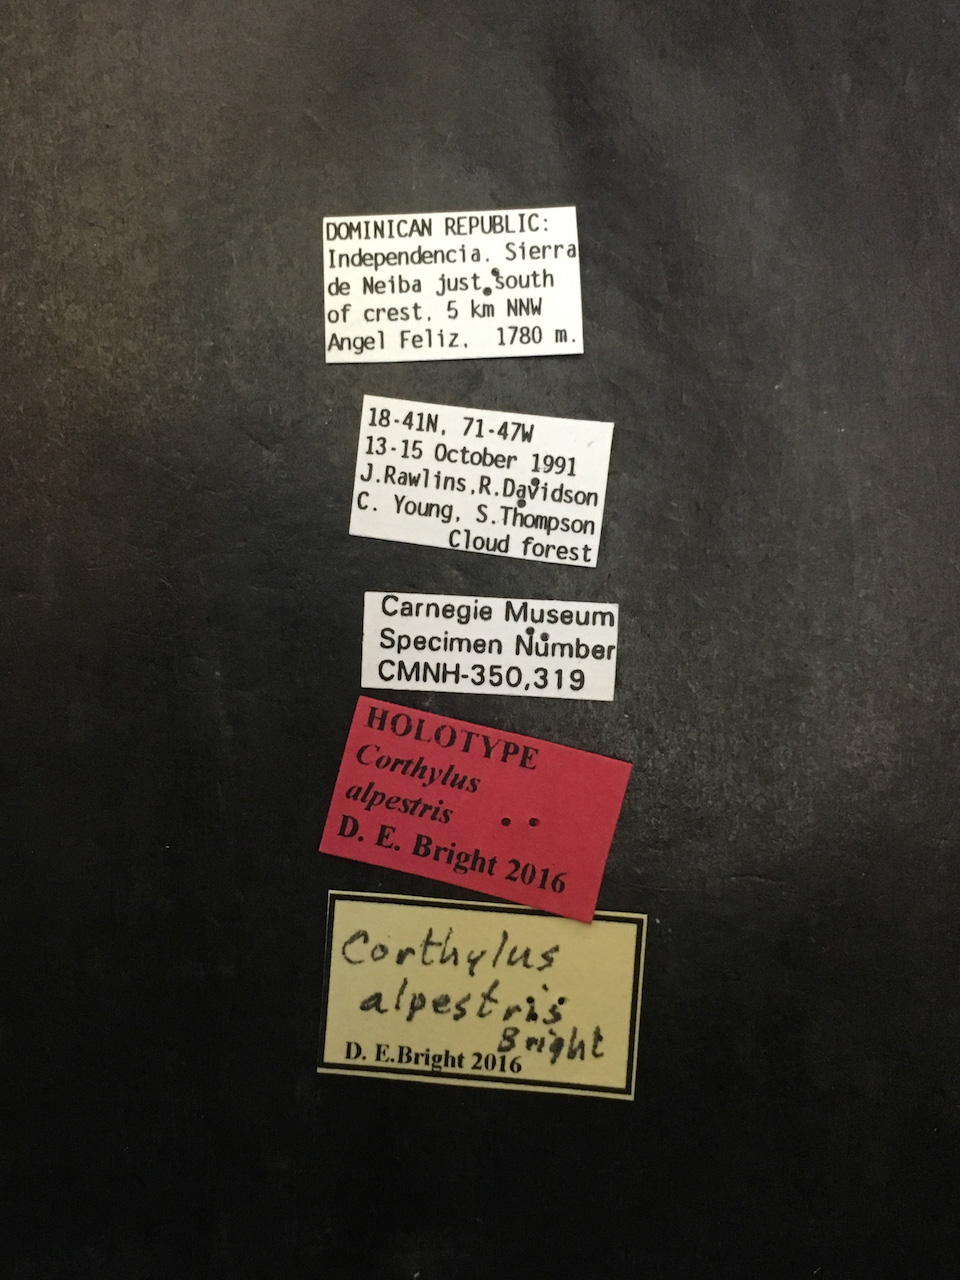 DOMINICAN REPUBLIC:
Independencia. Sierra
de Neiba just south
of crest, 5 km NNW
Angel Feliz, 1780 m.
18-41N, 71-47W
13-15 October 1991
J.Rawlins,R.Davidson
C. Young, S.Thompson
Cloud forest
Carnegie Museum
Specimen Number
CMNH-350,319
HOLOTYPE
Corthylus
alpestris
D. E. Bright 2016
Corthylus
alpestris
Bright
D. E.Bright 2016